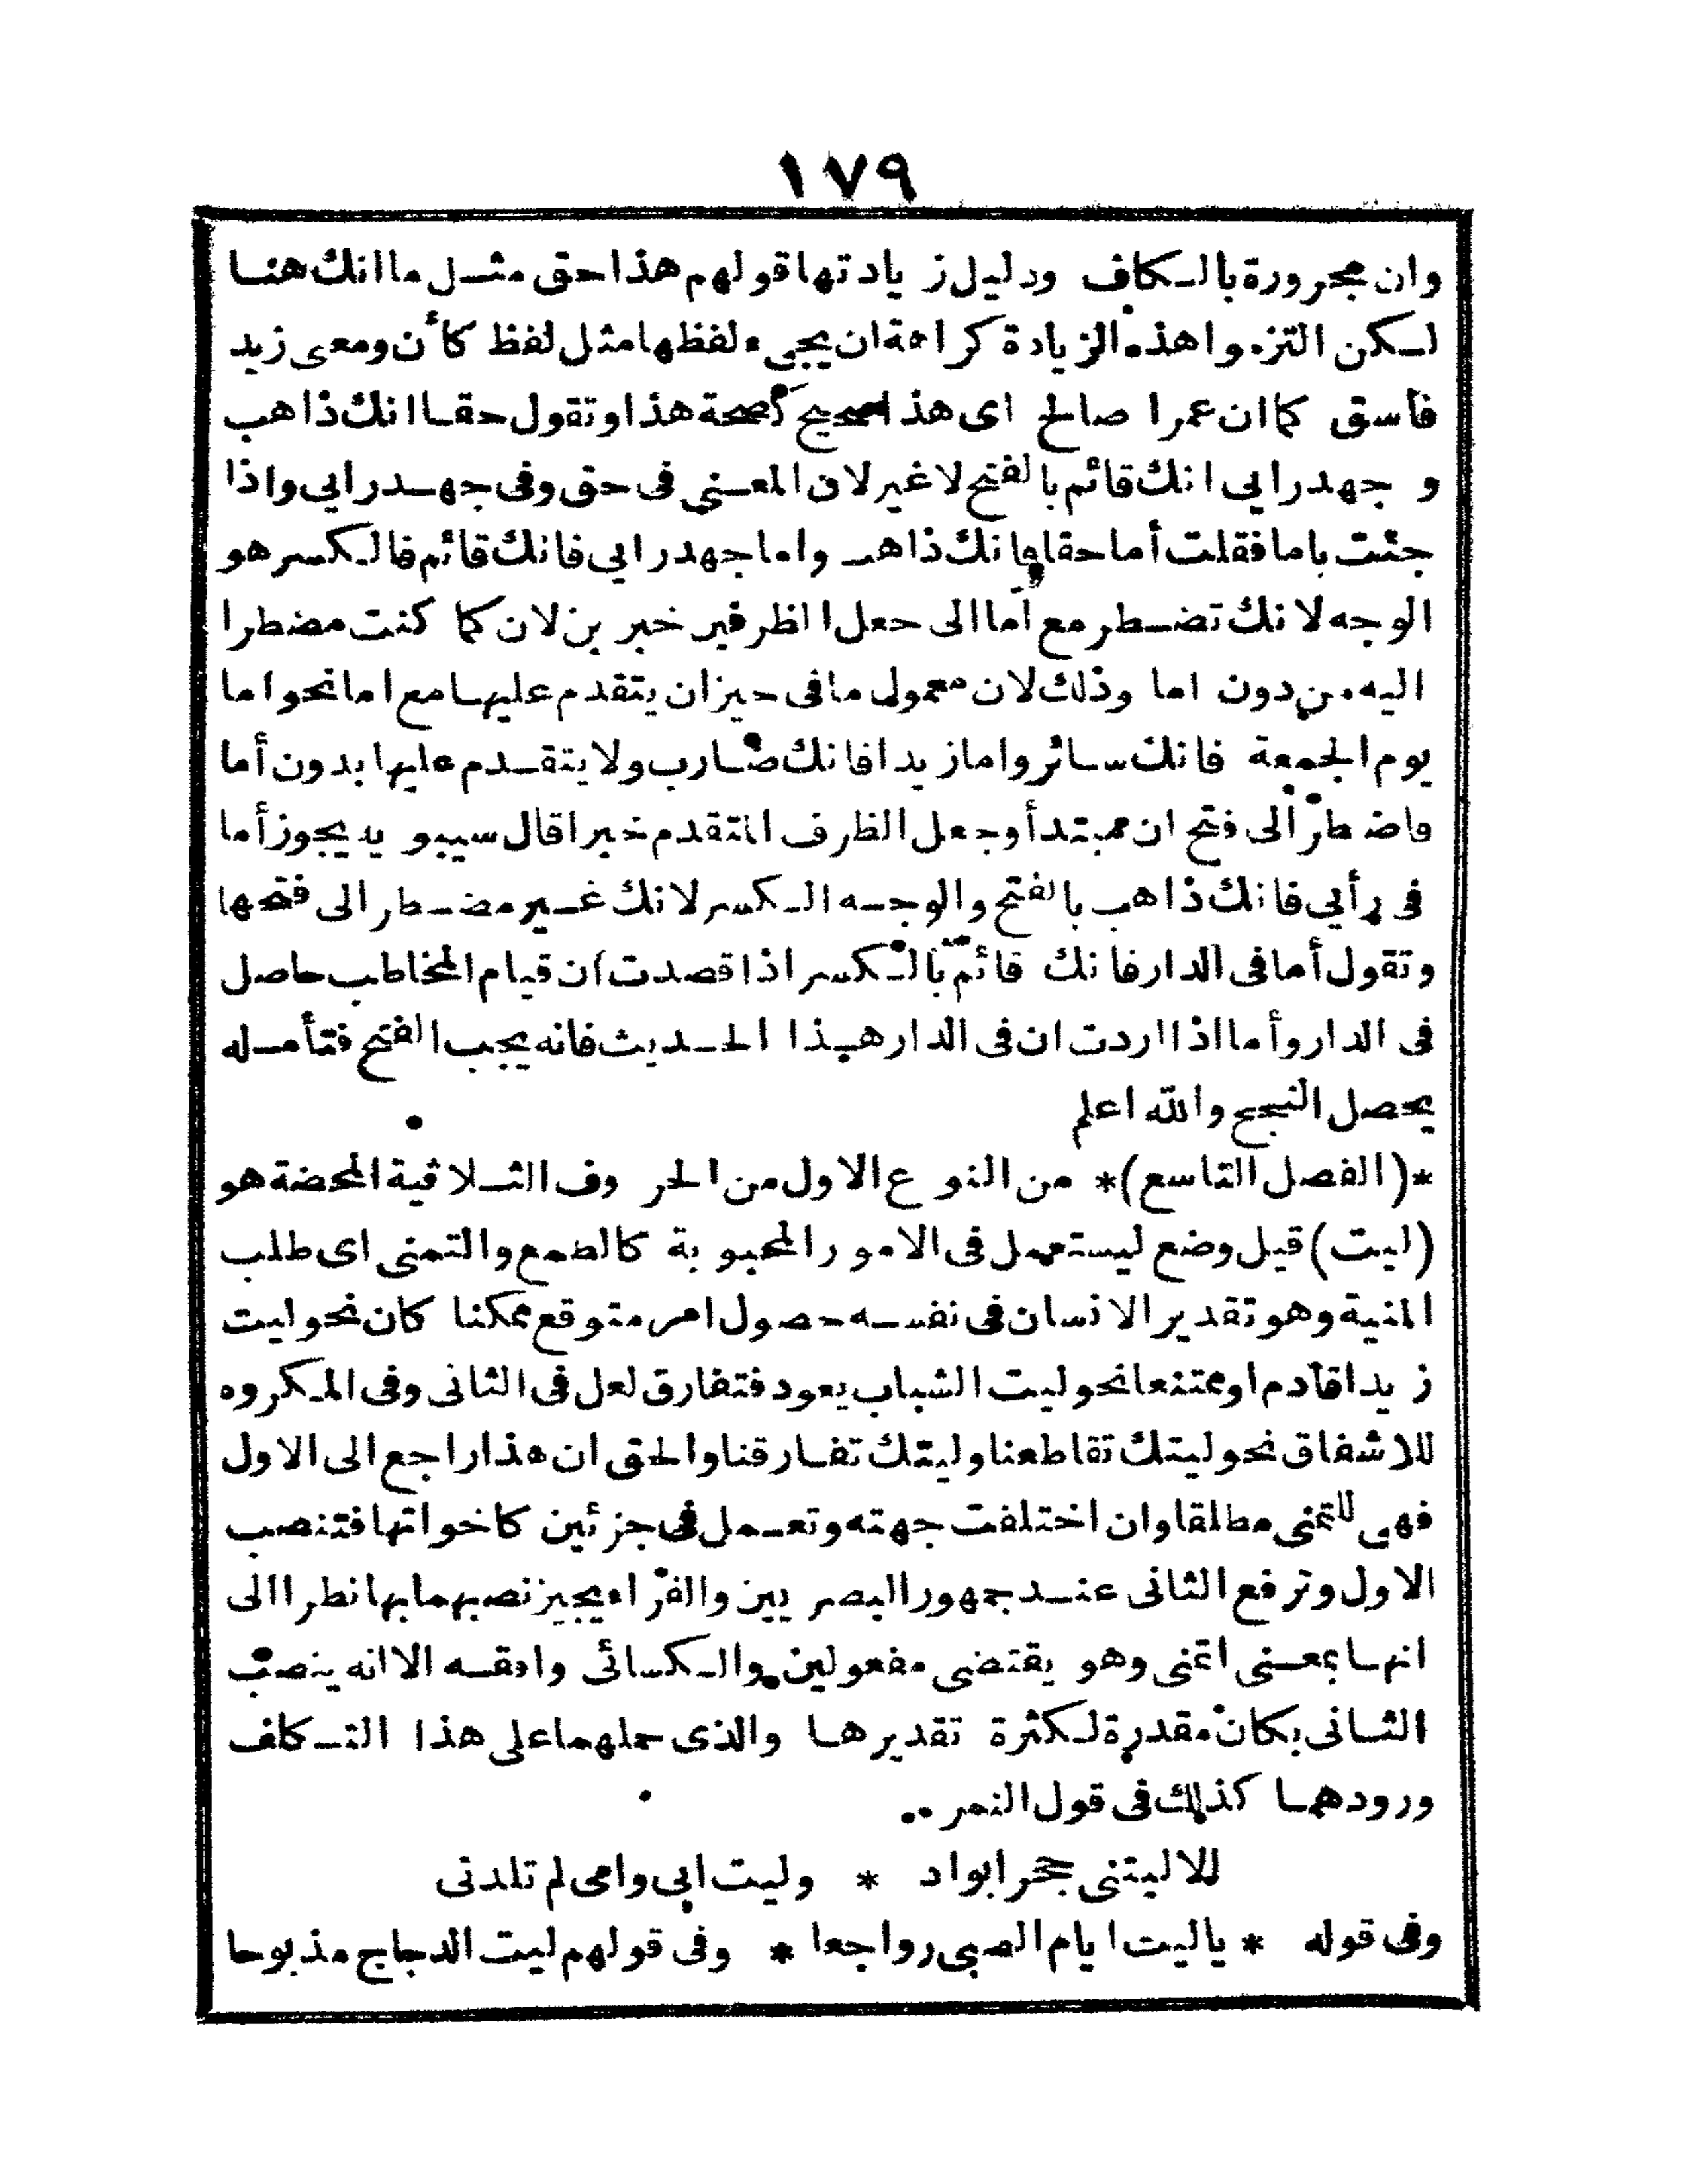 ١٧٩
وان مجرورة بالكاف ودليل زيادتها قولهم هذا حق مثل ما انك هنا
لكن التزموا هذه الزيادة كراهة ان يجىء لفظها مثل لفظ كأن ومعى زيد
فاسق كما ان عمرا صالح اى هذا صحيح كصحة هذا وتقول حقا انك ذاهب
و جهد رابى انك قائم بالفتح لا غير لان المعنى فى حق وفى جهد رابى واذا
جئت باما فقلت أما حقا فانك ذاهب واما جهد رابى فانك قائم فالكسر هو
الوجه لانك تضطر مع اما الى جعل الظرفين خبرين لان كما كنت مضطرا
اليه من دون اما وذلك لان معمول ما فى حيز ان يتقدم عليها مع اما نحو اما
يوم الجمعة فانك سائر واما زيدا فانك ضارب ولا يتقدم عليها بدون أما
فاضطر الى فتح ان مبتدأ وجعل الظرف المتقدم خبرا قال سيبويه يجوز أما
فى رأيى فانك ذاهب بالفتح والوجه الكسر لانك غير مضطر الى فتحها
وتقول أما فى الدار فانك قائم بالكسر اذا قصدت ان قيام المخاطب حاصل
فى الدار وأما اذا اردت ان فى الدار هذا الحديث فانه يجب الفتح فتأمله
يحصل النجح والله اعلم
*(الفصل التاسع)* من النوع الاول من الحروف الثلاثية المحضة هو
(ليت) قيل وضع ليستعمل فى الامور المحبوبة كالطمع والتمنى اى طلب
المنية وهو تقدير الانسان فى نفسه حصول امر متوقع ممكنا كان نحو ليت
زيدا قادم او ممتنعا نحو ليت الشباب يعود فتفارق لعل فى الثانى وفى المكروه
للاشفاق نحو ليتك تقاطعنا وليتك تفارقنا والحق ان هذا راجع الى الاول
فهى للتمنى مطلقا وان اختلفت جهته وتعمل فى جزئين كاخواتها فتنصب
الاول وترفع الثانى عند جمهور البصريين والفراء يجيز نصبهما بها نظرا الى
انها بمعنى اتمنى وهو يقتضى مفعولين والكسائى وافقه الا انه ينصب
الثانى بكان مقدرة لكثرة تقديرها والذى حملهما على هذا التكلف
ورودهما كذلك فى قول النمر
للا ليتنى حجرا بواد * وليت ابى وامى لم تلدنى
وفى قوله * ياليت ايام الصبى رواجعا * وفى قولهم ليت الدجاج مذبوحا